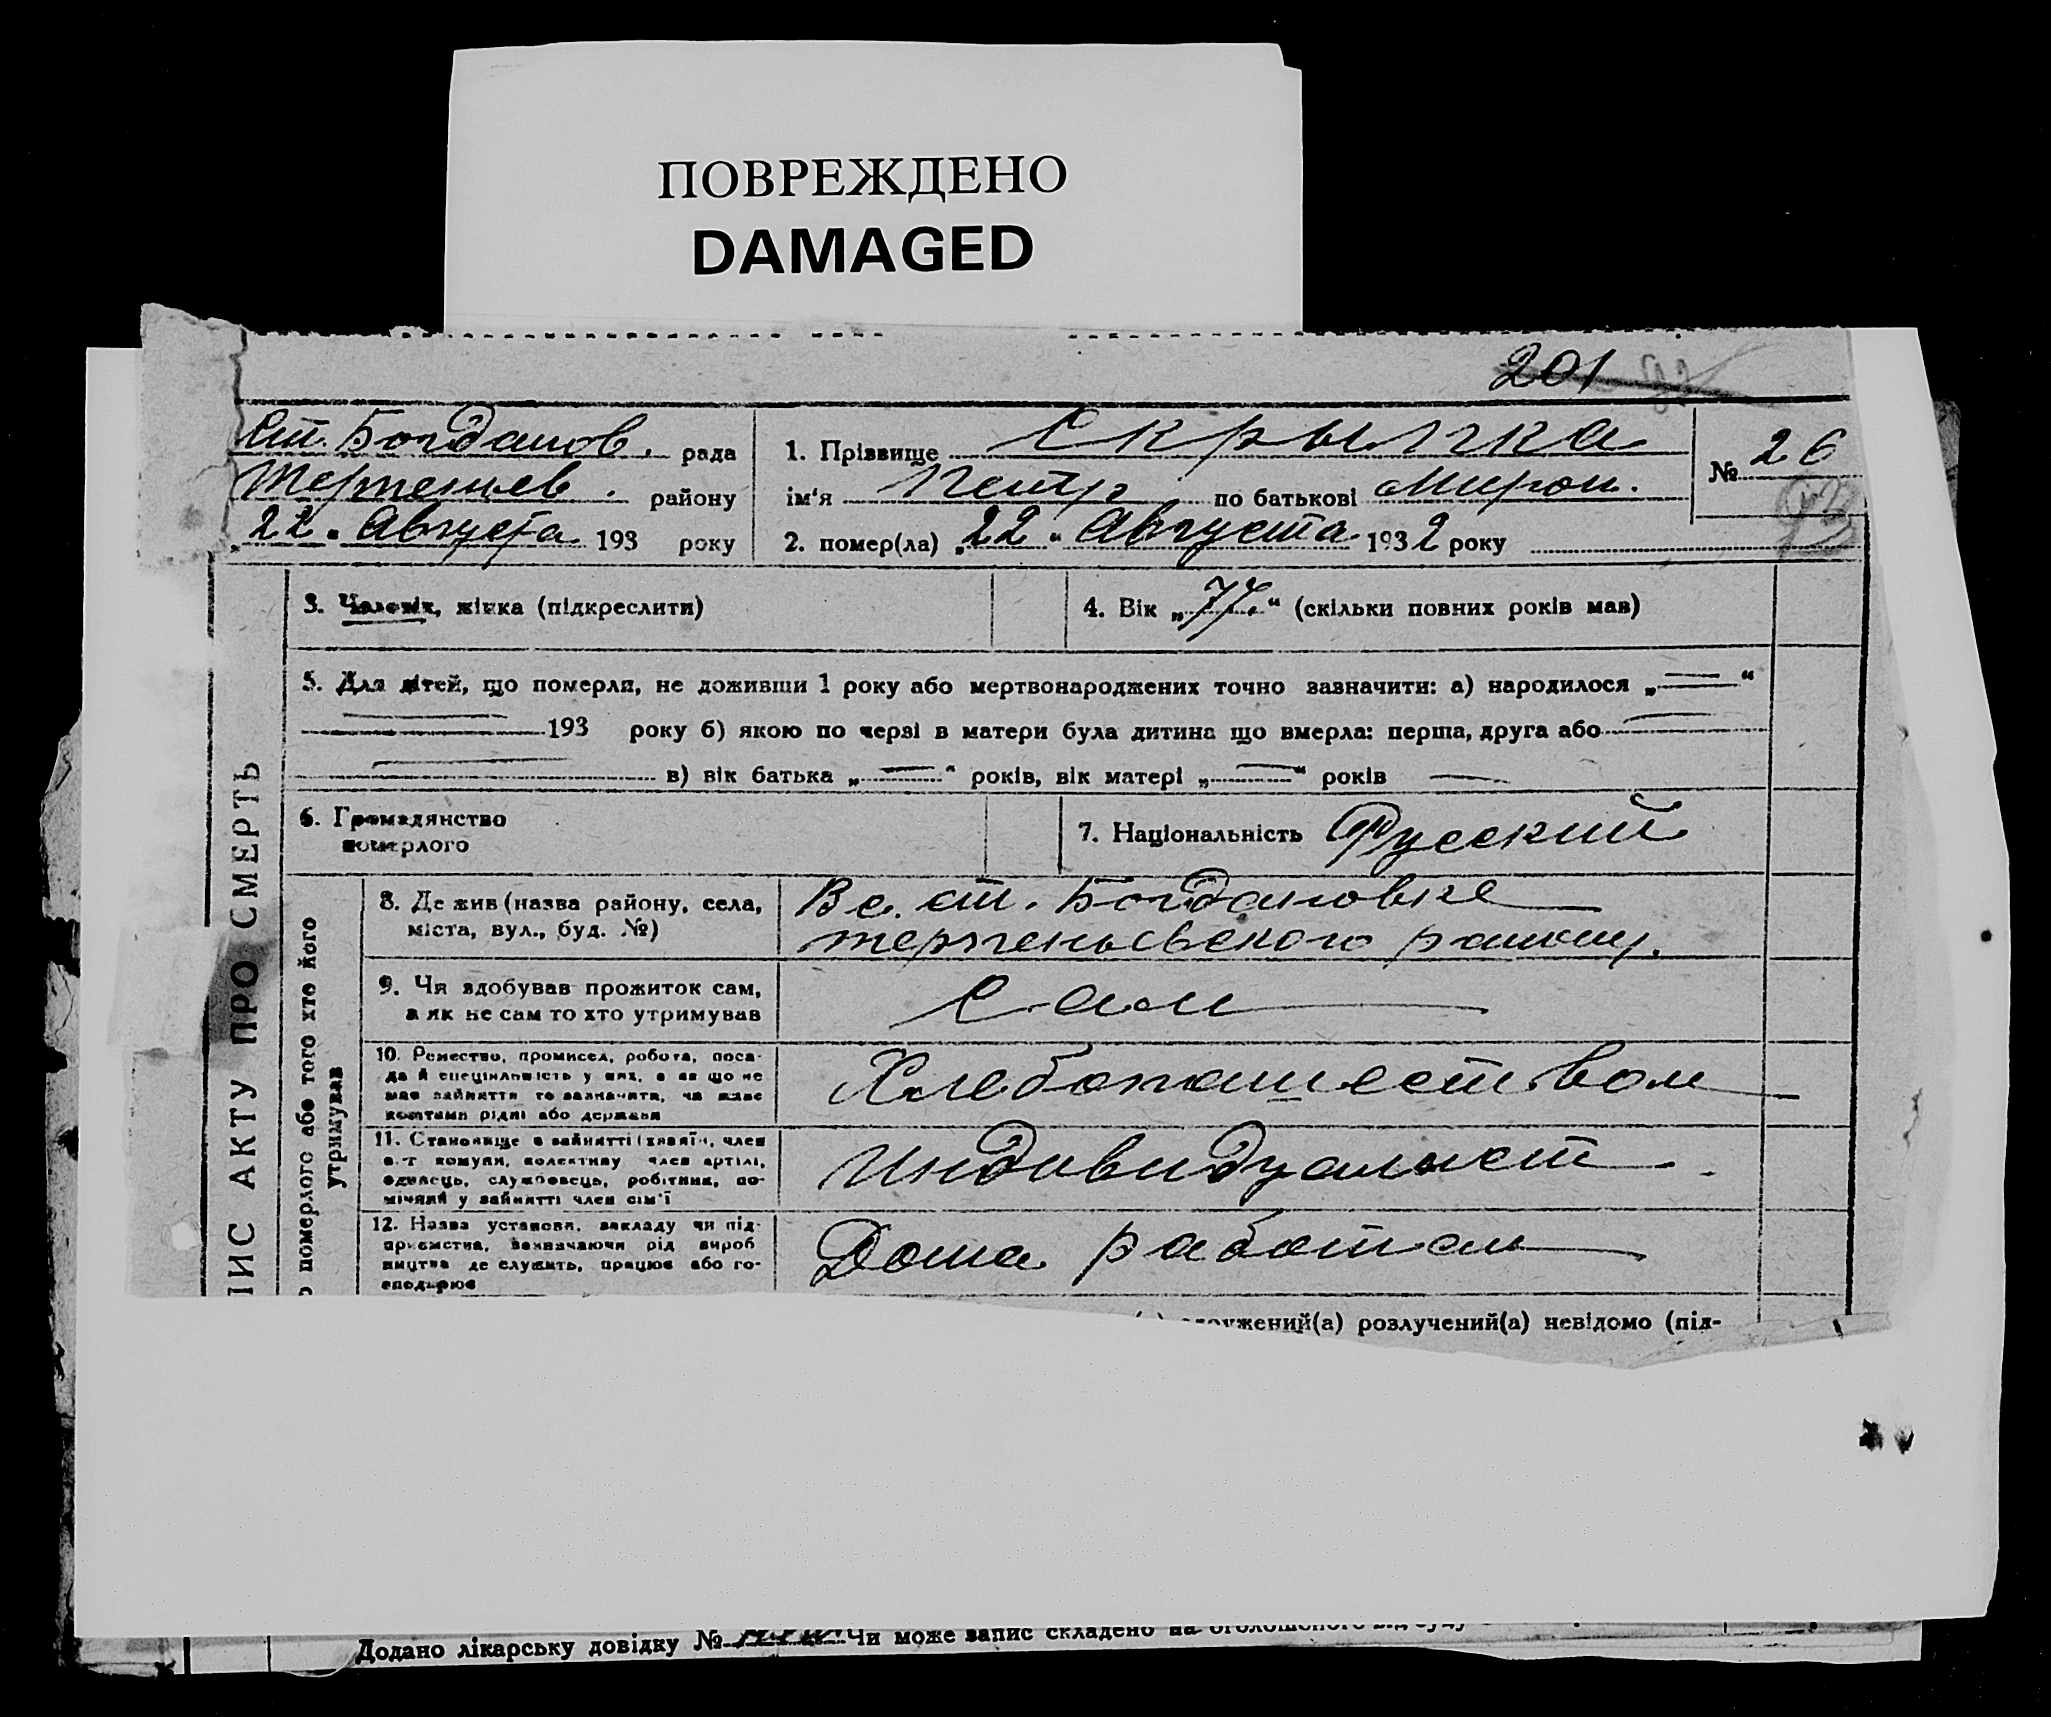 ПОВРЕЖДЕНО
DAMAGED
201
Ст. Богданов. рада
Терпеньев. району
„22“ Августа 193 року
1. Прізвище Скрылка
ім'я Петр по батькові Мирон.
2. помер(ла) „22“ Августа 1932 року
№ 26
3. Чоловік, жінка (підкреслити)
4. Вік „77“ (скільки повних років мав)
5. Для дітей, що померли, не доживши 1 року або мертвонароджених точно зазначити: а) народилося „—“
— 193 року б) якою по черзі в матери була дитина що вмерла: перша, друга або —
— в) вік батька „—“ років, вік матері „—“ років —
6. Громадянство
померлого
7. Національність Русский
8. Де жив (назва району, села,
міста, вул., буд. №)
В с. ст. Богдановке
терпеньевского району.
9. Чи здобував прожиток сам,
а як не сам то хто утримував
Сам
10. Ремество, промисел, робота, поса-
да й спеціяльність у них, а як що не
мав зайняття то зазначити, чи жив
коштами рідні або держави
Хлебопашеством
11. Становище в зайнятті (хазяїн, член
с.-г комуни, колективу член артілі,
одинець, службовець, робітник, по-
мічний у зайнятті член сім'ї
Индивидуалист
12. Назва установи, закладу чи під-
приємства, зазначаючи рід вироб
ництва де служить, працює або го-
сподарює
Дома работал
ПИС АКТУ ПРО СМЕРТЬ
померлого або того хто його
утримував
одружений(а) розлучений(а) невідомо (під-
Додано лікарську довідку № Чи може запис складено на оголошеного від суду